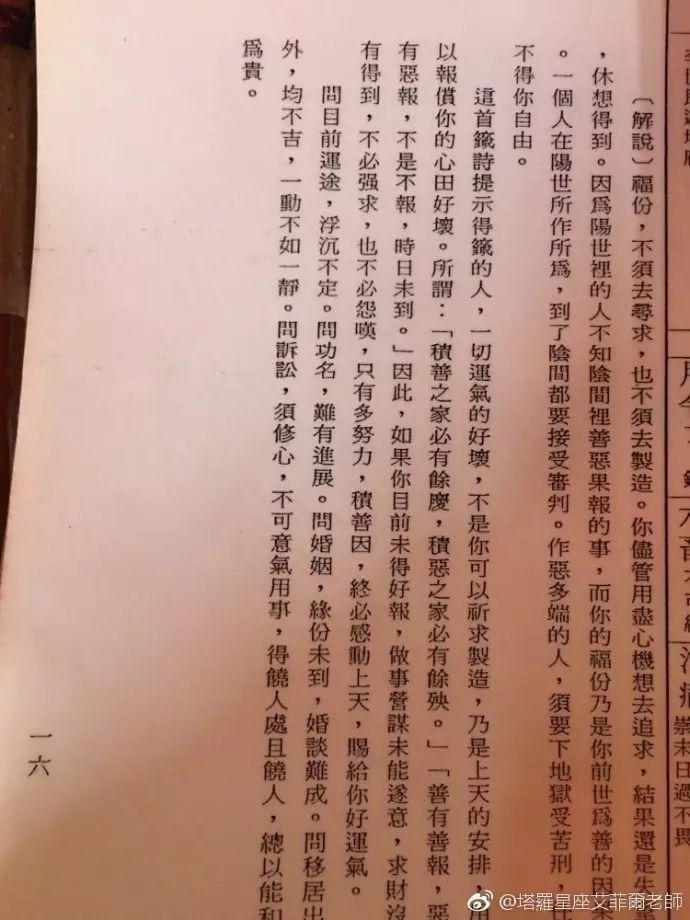 〔解說〕福份，不須去尋求，也不須去製造。你儘管用盡心機想去追求，結果還是失
，休想得到。因爲陽世裡的人不知陰間裡善惡果報的事，而你的福份乃是你前世爲善的因
。一個人在陽世所作所爲，到了陰間都要接受審判。作惡多端的人，須要下地獄受苦刑，
不得你自由。
這首籤詩提示得籤的人，一切運氣的好壞，不是你可以祈求製造，乃是上天的安排，
以報償你的心田好壞。所謂：「積善之家必有餘慶，積惡之家必有餘殃。」「善有善報，惡
有惡報，不是不報，時日未到。」因此，如果你目前未得好報，做事營謀未能遂意，求財沒
有得到，不必强求，也不必怨嘆，只有多努力，積善因，終必感動上天，賜給你好運氣。
問目前運途，浮沉不定。問功名，難有進展。問婚姻，緣份未到，婚談難成。問移居出
外，均不吉，一動不如一靜。問訴訟，須修心，不可意氣用事，得饒人處且饒人，總以能和
爲貴。
一六
@塔羅星座艾菲爾老師